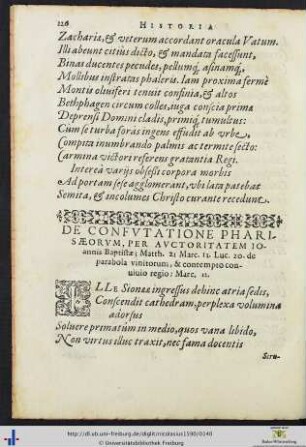 126 HISTORIA
Zacharia, & veterum accordant oracula Vatum.
Illi abeunt citius dicto, & mandata facessunt,
Binas ducentes pecudes, pellumq́, asinamq́,
Mollibus instratas phaleris. Iam proxima fermè
Montis oliuiferi tenuit confinia, & altos
Bethphagen circum colles, iuga conscia prima
Deprensi Domini cladis, primiq́, tumultus:
Cum se turba foràs ingens effudit ab vrbe,
Compita inumbrando palmis ac termite secto:
Carmina victori referens gratantia Regi.
Intereà varijs obsessi corpora morbis
Ad portam sese agglomerant, vbi lata patebat
Semita, & incolumes Christo curante recedunt.
DE CONFVTATIONE PHARI-
SÆORVM, PER AVCTORITATEM IO-
annis Baptistæ: Matth. 21 Marc. 11. Luc. 20. de
parabola vinitorum, & contempto con-
uiuio regio: Marc. 12.
ILLE Sionææ ingressus debinc atria sedis,
Conscendit cathedram, perplexa volumina
adorsus
Soluere primatum in medio, quos vana libido,
Non virtus illuc traxit, nec fama docentis
Scru-
http://dl.ub.uni-freiburg.de/diglit/nicolasius1590/0140
© Universitätsbibliothek Freiburg